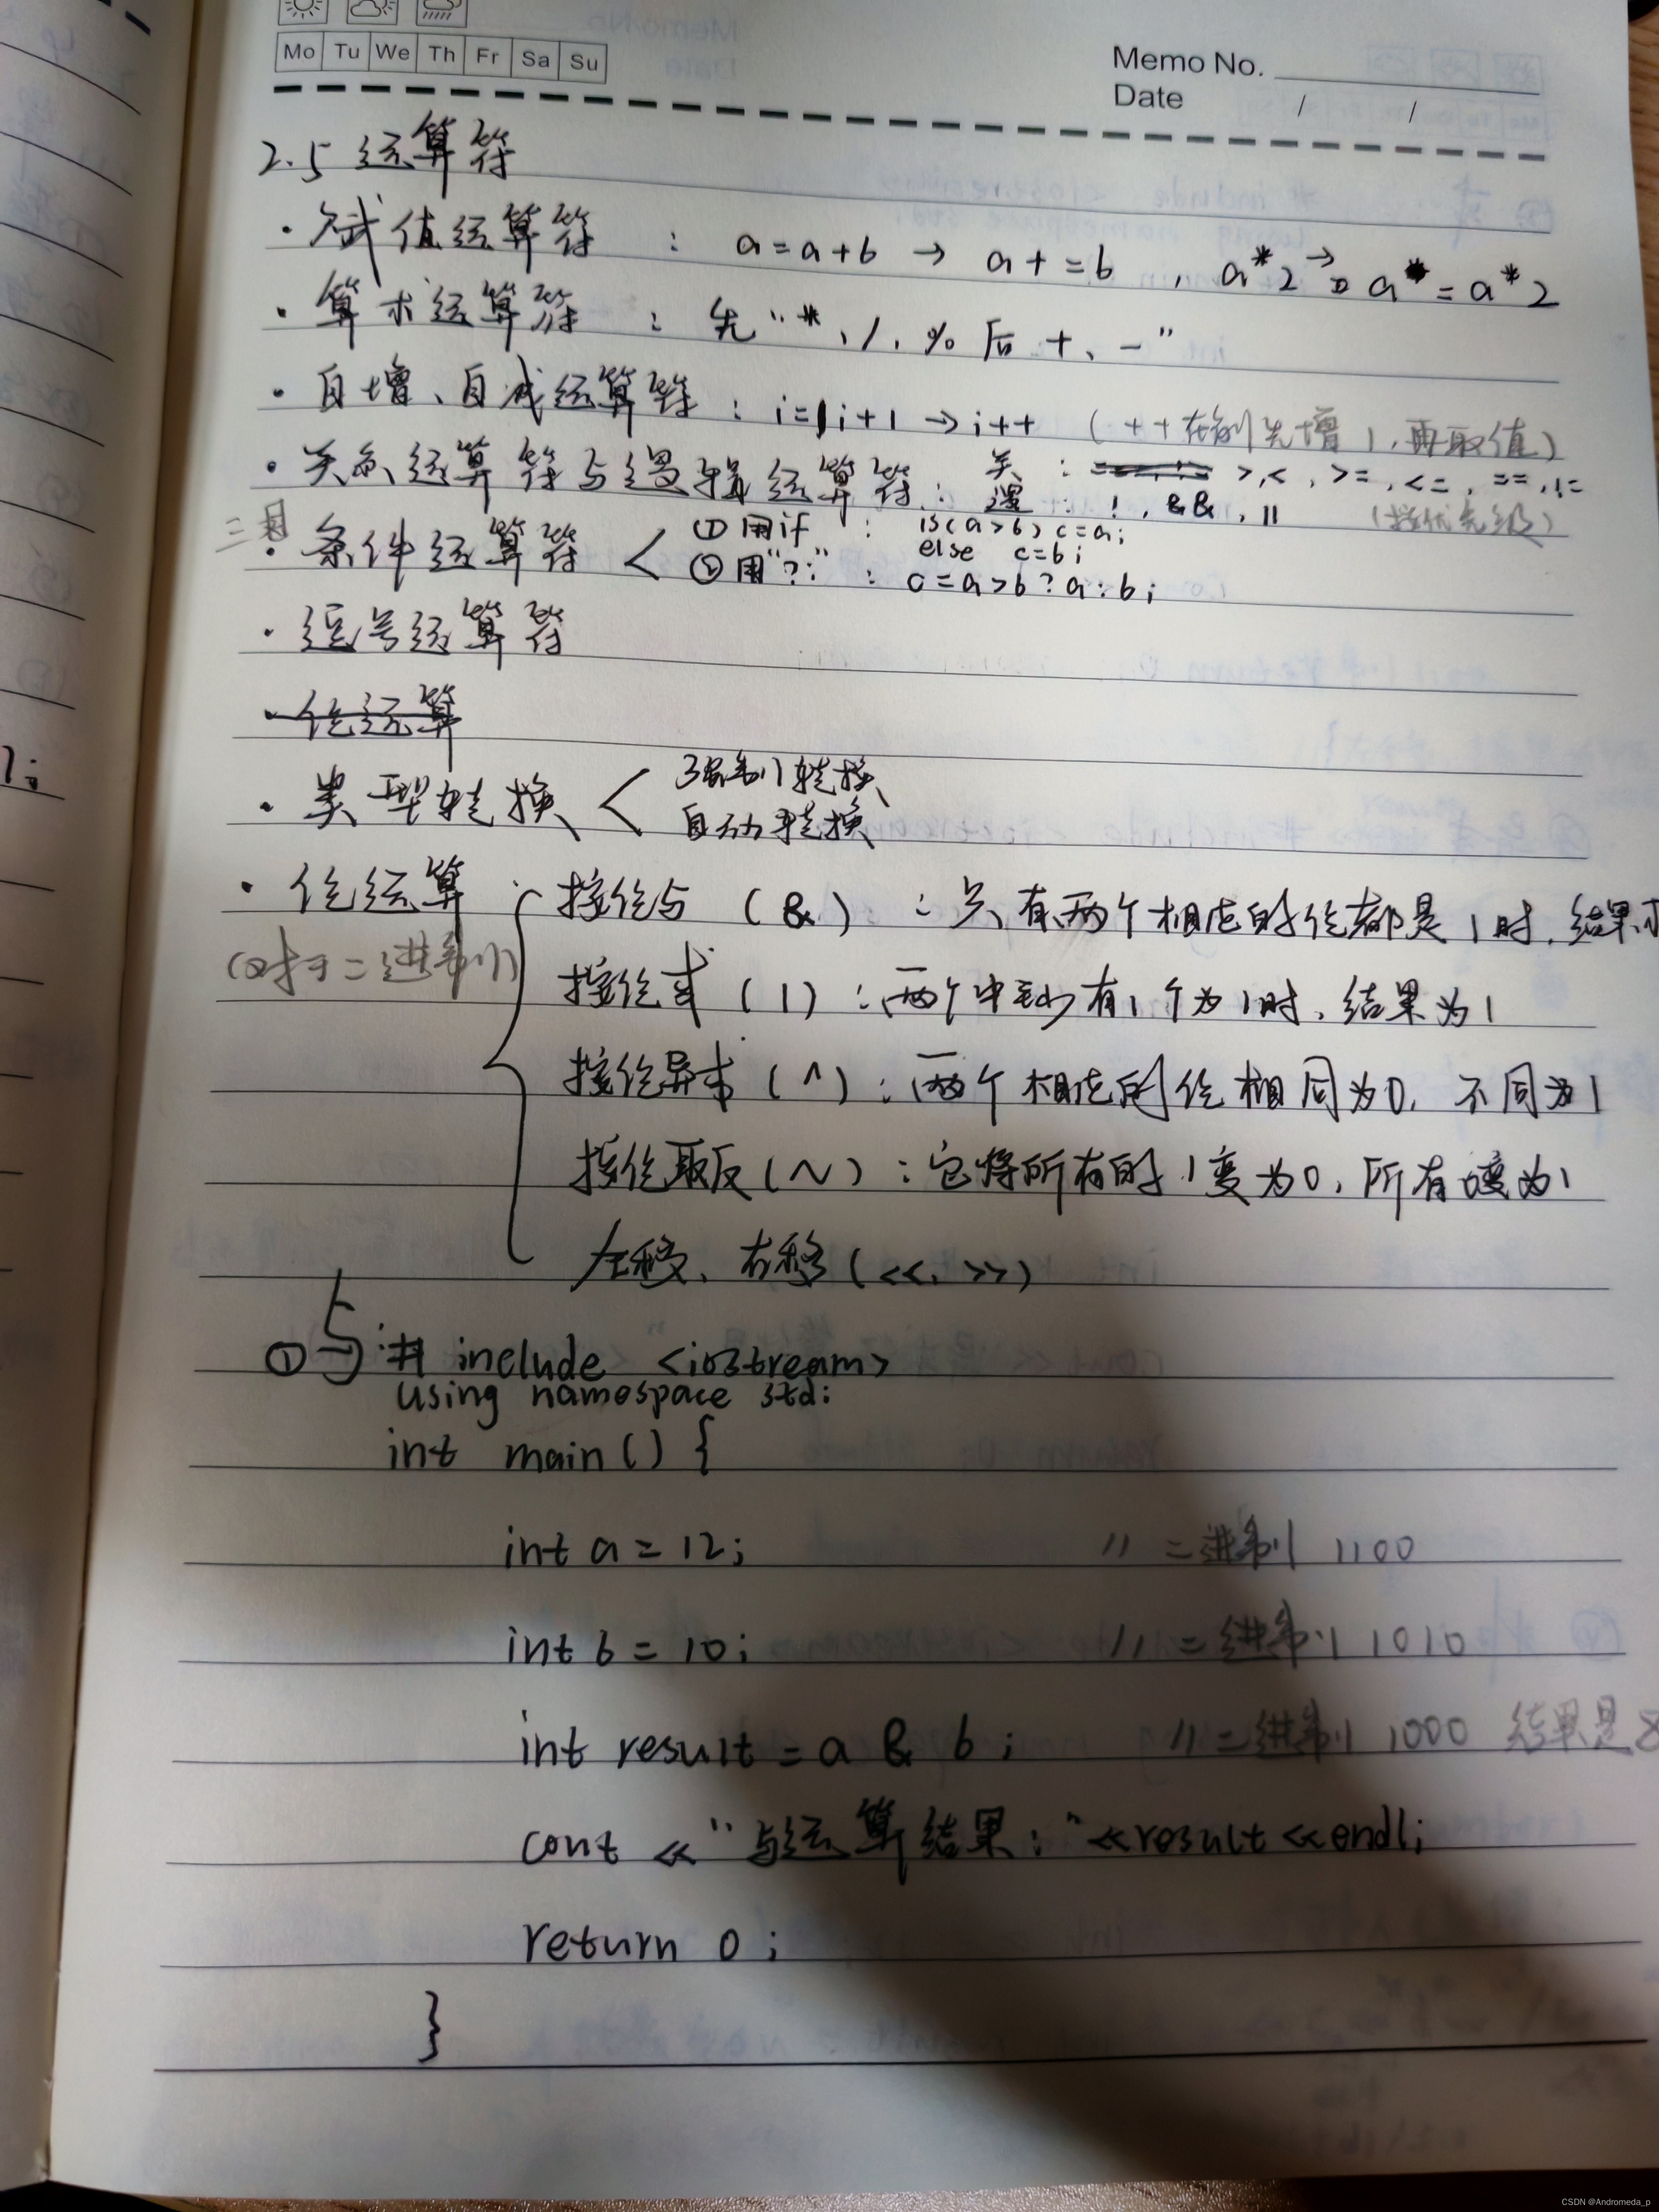 Mo Tu We Th Fr Sa Su
Memo No.
Date / /
2.5 运算符
· 赋值运算符 : a=a+b → a+=b , a*2 → a*=a*2
· 算术运算符 : 先“*、/、% 后 +、-”
· 自增、自减运算符 : i=i+1 → i++ (++在前先增1,再取值)
· 关系运算符与逻辑运算符: 关 : >,<,>=,<=,==,!=
逻 : !,&&,|| (按优先级)
三目
· 条件运算符 < ①用if : is(a>b) c=a;
else c=b;
②用“?:” : c=a>b?a:b;
· 逗号运算符
· 位运算
· 类型转换 < 强制转换
自动转换
· 位运算 : 按位与 (&) : 只有两个相应的位都是1时,结果才
(对于二进制) 按位或 (|) : 两个中至少有1个为1时,结果为1
按位异或 (^) : 两个相应的位相同为0,不同为1
按位取反 (~) : 它将所有的1变为0,所有0变为1
左移、右移 (<<、>>)
①与: # include <iostream>
using namespace std;
int main() {
int a = 12; // 二进制 1100
int b = 10; // 二进制 1010
int result = a & b ; // 二进制 1000 结果是8
cout << "与运算结果:" <<result <<endl;
return 0 ;
}
1;
CSDN @Andromeda_p